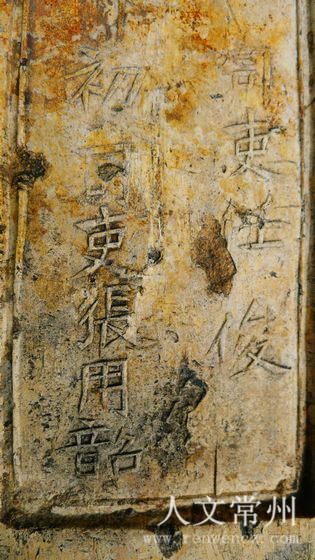 司吏任俊
初司吏張用韶
人文常州
www.renwencz.com